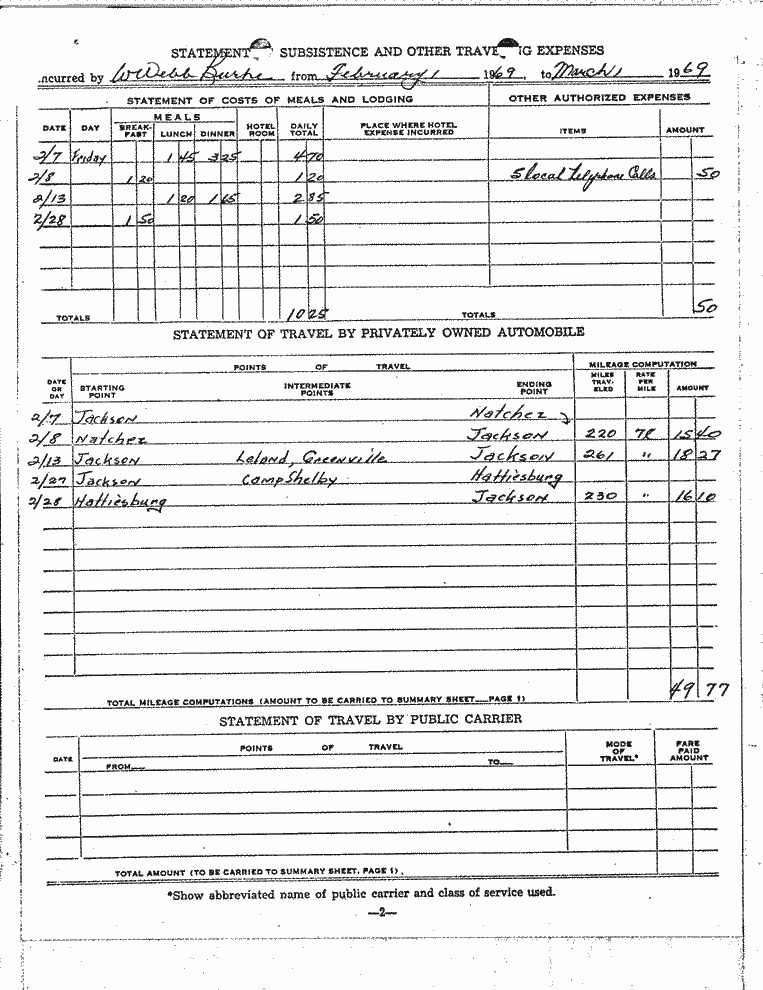 STATEMENT SUBSISTENCE AND OTHER TRAVE IG EXPENSES
ncurred by W Webb Burke from February 1 1969, to March 1 1969
STATEMENT OF COSTS OF MEALS AND LODGING OTHER AUTHORIZED EXPENSES
DATE DAY MEALS BREAK-FAST LUNCH DINNER HOTEL ROOM DAILY TOTAL PLACE WHERE HOTEL EXPENSE INCURRED ITEMS AMOUNT
2/7 Friday 1 45 3 25 4 70
2/8 1 20 1 20 5 local telephone Calls 50
2/13 1 20 1 65 2 85
2/28 1 50 1 50
TOTALS 10 25 TOTALS 50
STATEMENT OF TRAVEL BY PRIVATELY OWNED AUTOMOBILE
POINTS OF TRAVEL MILEAGE COMPUTATION
DATE OR DAY STARTING POINT INTERMEDIATE POINTS ENDING POINT MILES TRAV-ELED RATE PER MILE AMOUNT
2/7 Jackson Natchez
2/8 Natchez Jackson 220 7¢ 15 40
2/13 Jackson Leland, Greenville Jackson 261 " 18 27
2/27 Jackson Camp Shelby Hattiesburg
2/28 Hattiesburg Jackson 230 " 16 10
TOTAL MILEAGE COMPUTATIONS (AMOUNT TO BE CARRIED TO SUMMARY SHEET__PAGE 1) 49 77
STATEMENT OF TRAVEL BY PUBLIC CARRIER
DATE POINTS OF TRAVEL MODE OF TRAVEL* FARE PAID AMOUNT
FROM__ TO__
TOTAL AMOUNT (TO BE CARRIED TO SUMMARY SHEET. PAGE 1).
*Show abbreviated name of public carrier and class of service used.
—2—